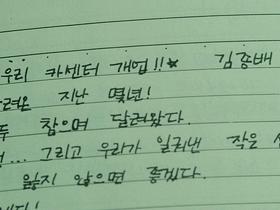 우리 카센터 개업!!★ 김종배
달려온 지난 몇년!
참으며 달려왔다.
... 그리고 우리가 일궈낸 작은
잃지 않으면 좋겠다.